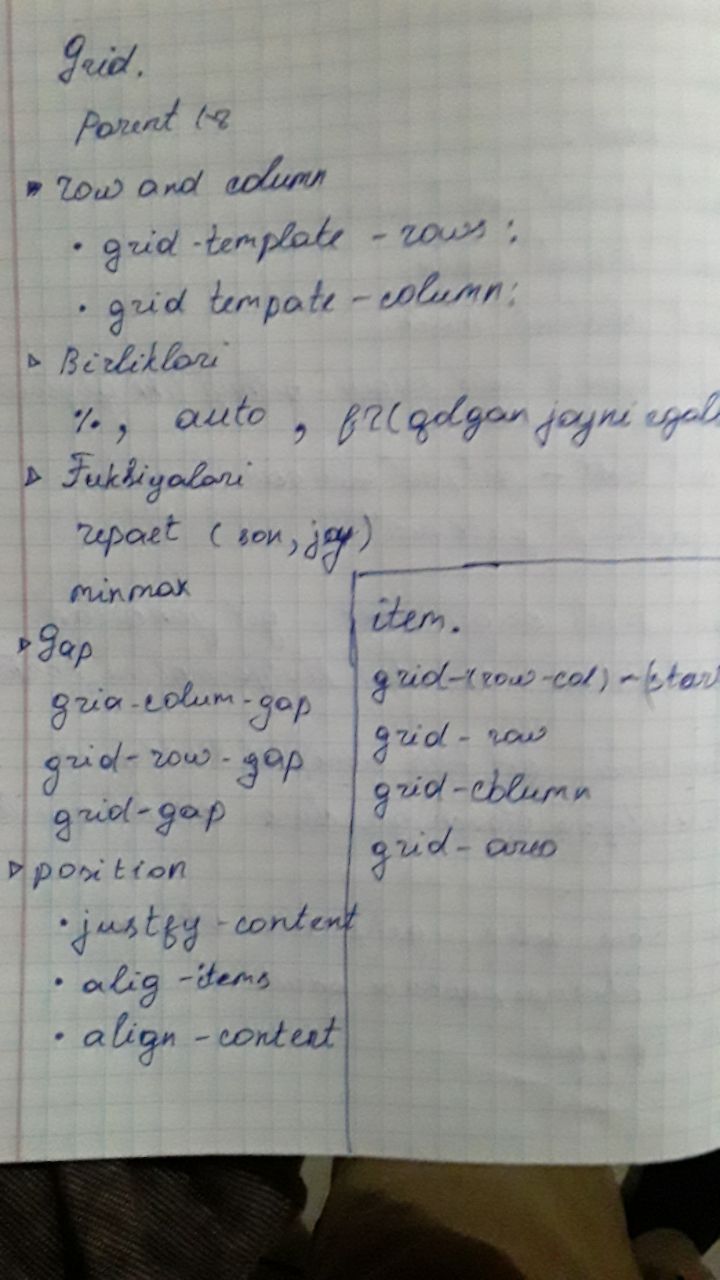 Grid.
Parent
row and column
• grid-template-rows:
• grid tempate-column:
Birliklari
%, auto, fr(qolgan joyni egal
Fuksiyalari
repaet (son, joy)
minmax
gap
grid-colum-gap
grid-row-gap
grid-gap
position
• justfy-content
• alig-items
• align-content
item.
grid-(row-col)-(star
grid-row
grid-column
grid-area